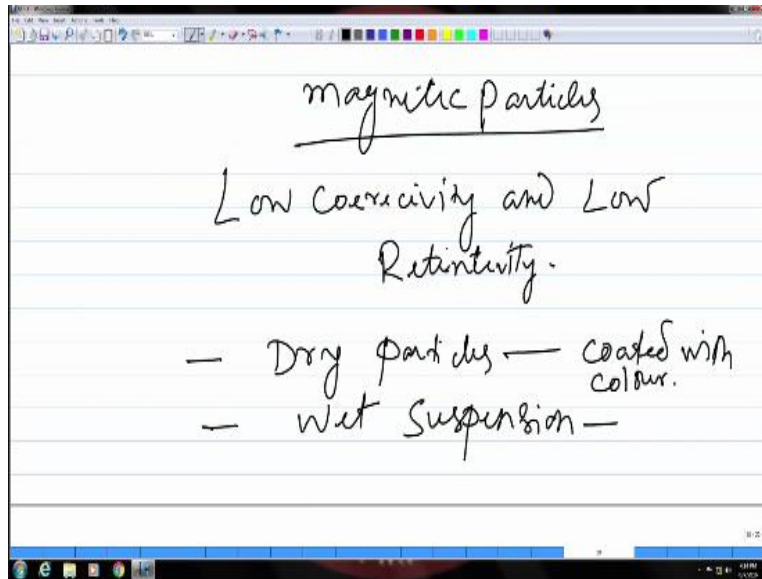 Magnetic Particles
Low Coerecivity and Low
Retintivity.
— Dry particles — coated with
colour.
— Wet Suspension —